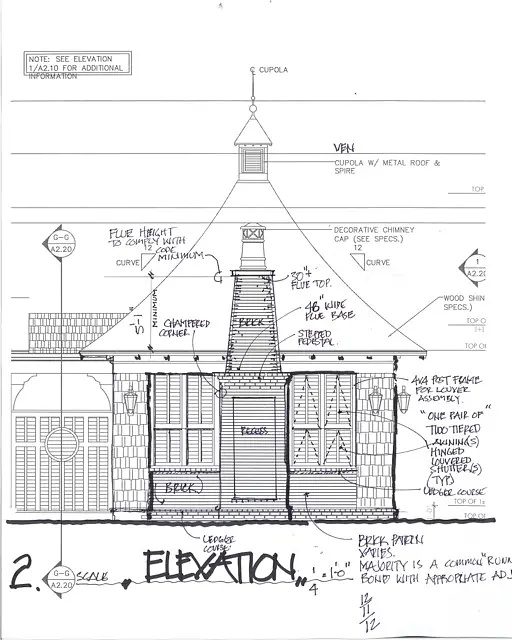 NOTE: SEE ELEVATION
1/A2.10 FOR ADDITIONAL
INFORMATION
℄ CUPOLA
VEN
CUPOLA W/ METAL ROOF &
SPIRE
TOP
G-G
A2.20
FLUE HEIGHT
TO COMPLY WITH
CODE
MINIMUM
12
CURVE
DECORATIVE CHIMNEY
CAP (SEE SPECS.)
12
CURVE
1
A2.20
30"±
FLUE TOP.
48" WIDE
FLUE BASE
WOOD SHIN
SPECS.)
5'-1"
MINIMUM
CHAMFERED
CORNER
BRICK
STEPPED
PEDESTAL
TOP O
TOP OF
4x4 POST FRAME
FOR LOUVER
ASSEMBLY.
"ONE PAIR OF"
TWO TIERED
AWNING(S)
HINGED
LOUVERED
SHUTTER(S)
(TYP.)
LEDGER COURSE
RECESS
BRICK
TOP OF 1s
TOP OF
LEDGER
COURSE
BRICK PATTERN
VARIES.
MAJORITY IS A COMMON "RUNN
BOND WITH APPROPRIATE ADJ
2.
G-G
A2.20
SCALE
"ELEVATION"
1/4" = 1'-0"
12
11
12